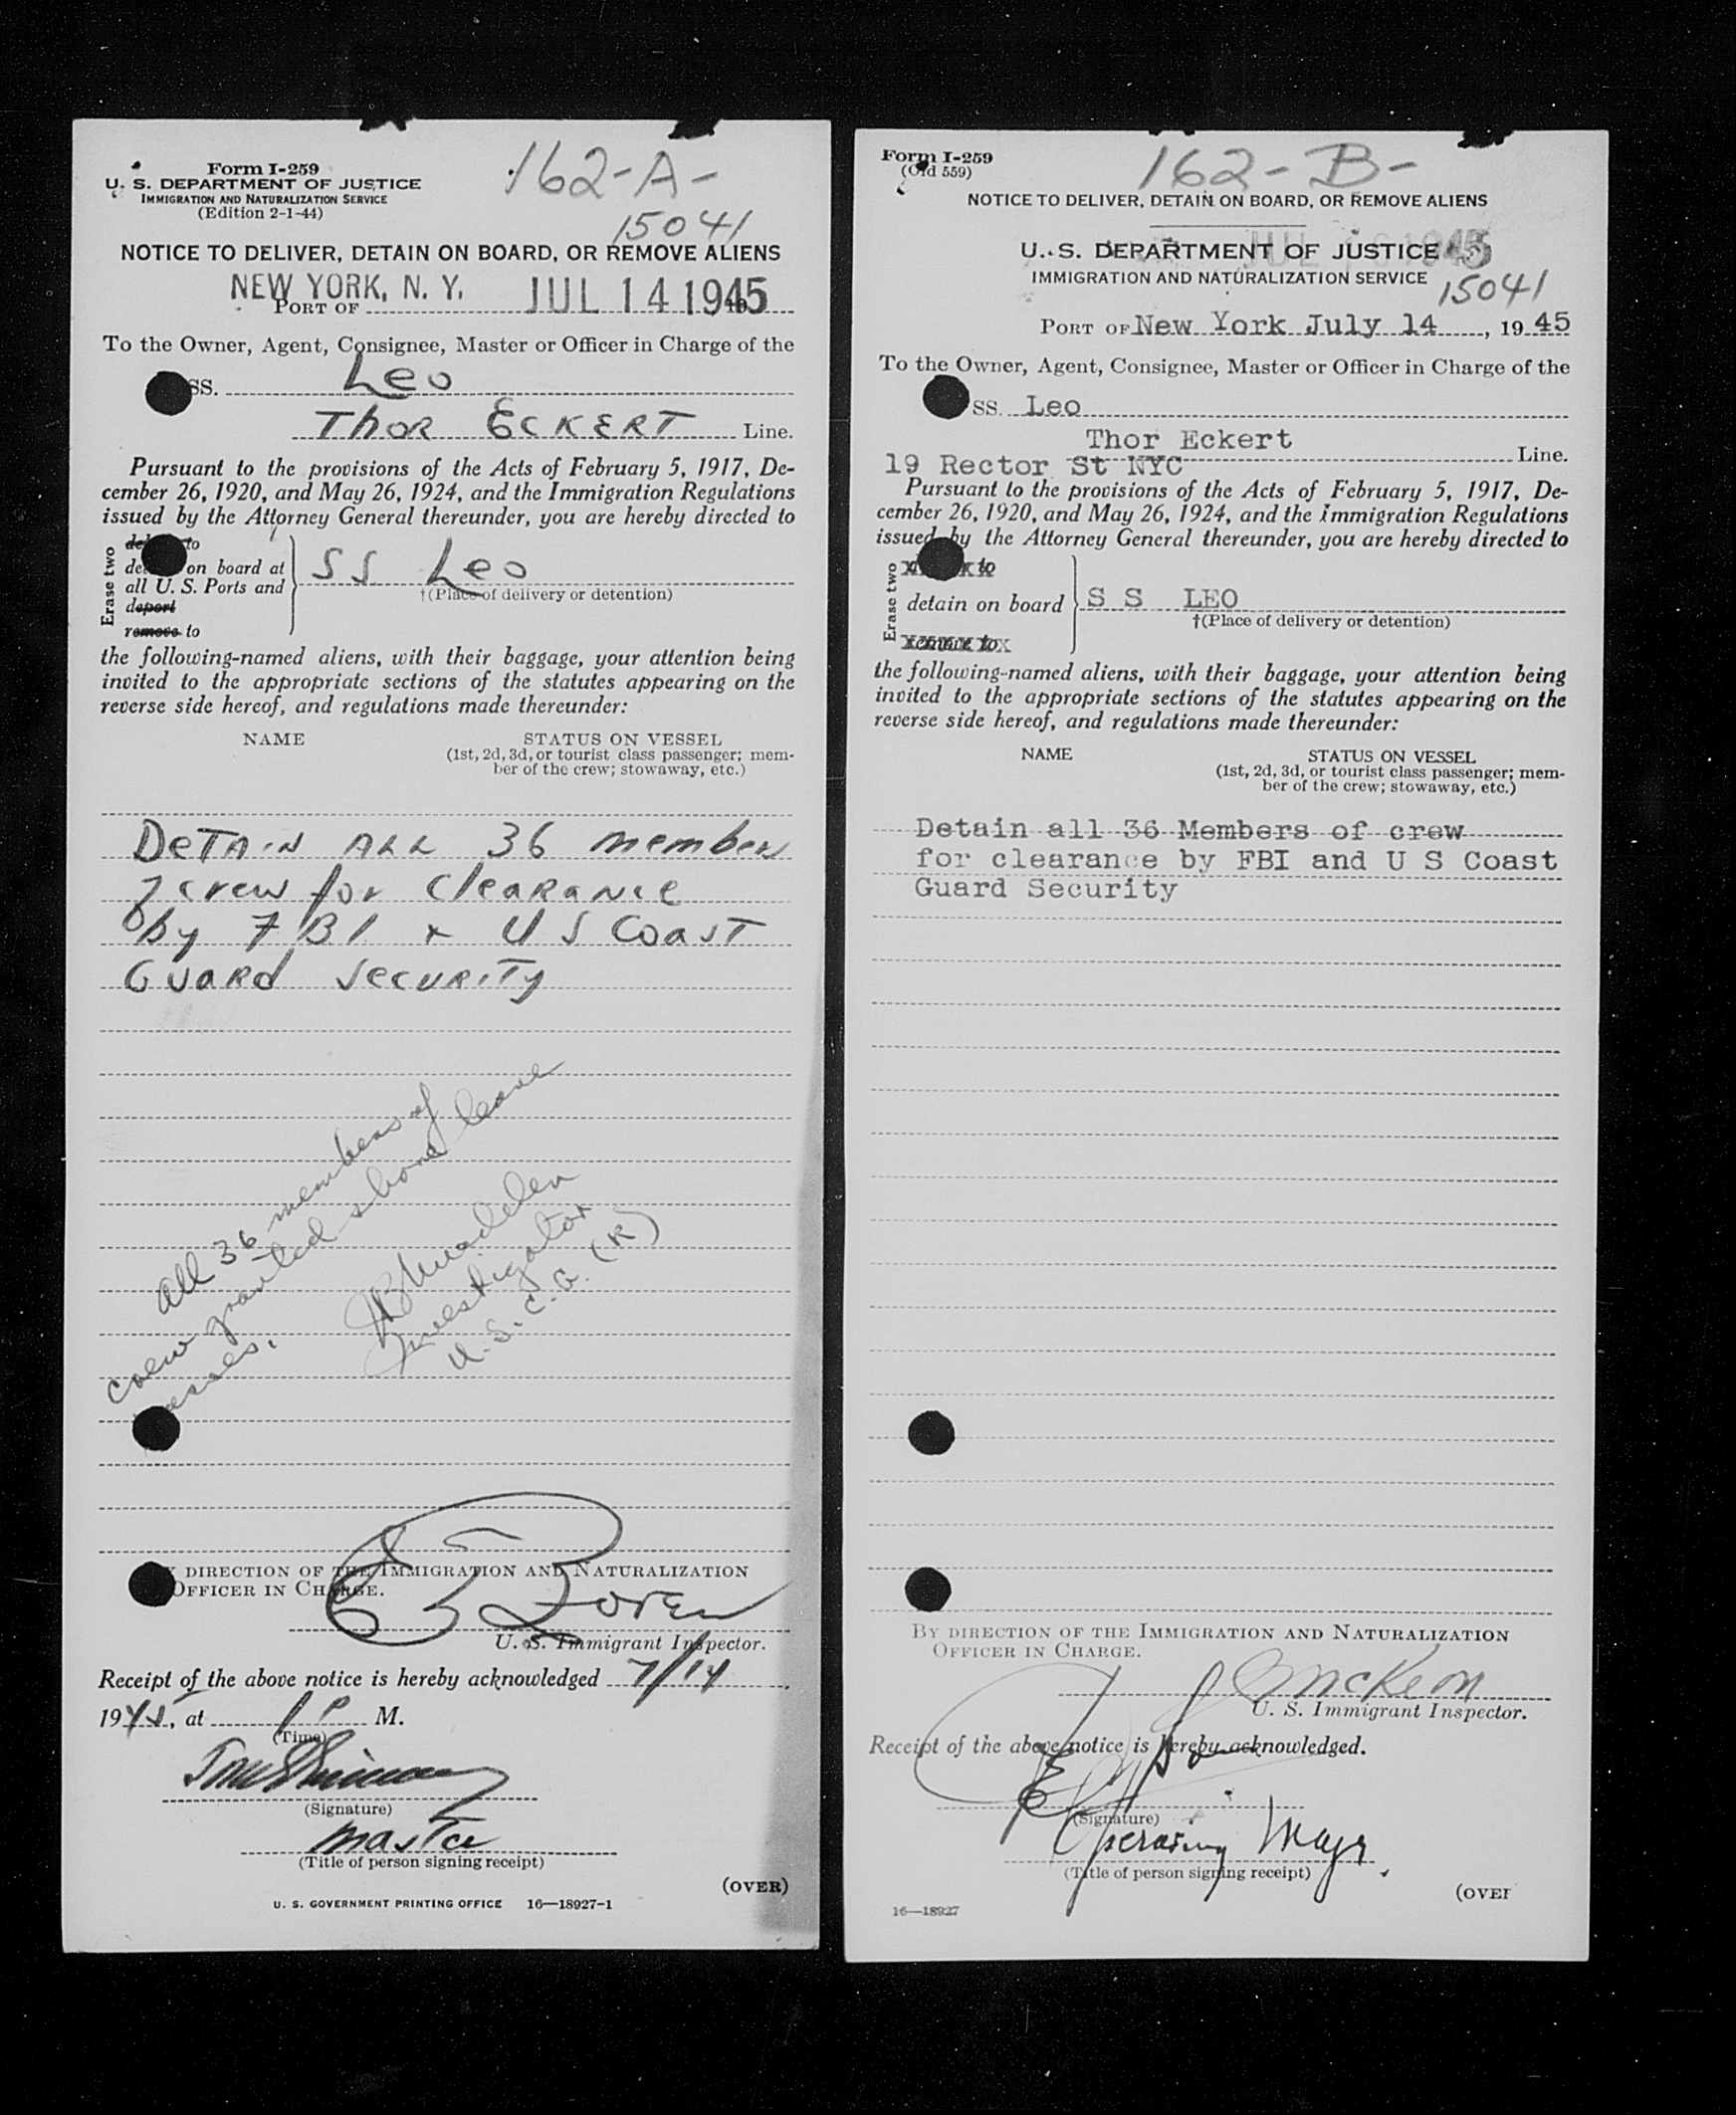 Form I-259
U. S. DEPARTMENT OF JUSTICE
IMMIGRATION AND NATURALIZATION SERVICE
(Edition 2-1-44)
162-A-
15041
NOTICE TO DELIVER, DETAIN ON BOARD, OR REMOVE ALIENS
NEW YORK, N. Y. JUL 14 1945
PORT OF
To the Owner, Agent, Consignee, Master or Officer in Charge of the
SS. Leo
Thor Eckert Line.
Pursuant to the provisions of the Acts of February 5, 1917, De-
cember 26, 1920, and May 26, 1924, and the Immigration Regulations
issued by the Attorney General thereunder, you are hereby directed to
Erase two
to
on board at
all U. S. Ports and
deport
remove to
SS Leo
†(Place of delivery or detention)
the following-named aliens, with their baggage, your attention being
invited to the appropriate sections of the statutes appearing on the
reverse side hereof, and regulations made thereunder:
NAME STATUS ON VESSEL
(1st, 2d, 3d, or tourist class passenger; mem-
ber of the crew; stowaway, etc.)
Detain all 36 members
of crew for clearance
by FBI + US Coast
Guard Security
All 36 members of
crew granted shore leave
passes.
Investigator
U.S.C.G. (R)
DIRECTION OF THE IMMIGRATION AND NATURALIZATION
OFFICER IN CHARGE.
U. S. Immigrant Inspector.
Receipt of the above notice is hereby acknowledged 7/14
1945, at 1 P M.
(Time)
(Signature)
Master
(Title of person signing receipt)
(OVER)
U. S. GOVERNMENT PRINTING OFFICE 16—18927-1
Form I-259
(Old 559)
162-B-
NOTICE TO DELIVER, DETAIN ON BOARD, OR REMOVE ALIENS
U. S. DEPARTMENT OF JUSTICE
IMMIGRATION AND NATURALIZATION SERVICE
15041
PORT OF New York July 14, 1945
To the Owner, Agent, Consignee, Master or Officer in Charge of the
SS. Leo
Thor Eckert Line.
19 Rector St NYC
Pursuant to the provisions of the Acts of February 5, 1917, De-
cember 26, 1920, and May 26, 1924, and the Immigration Regulations
issued by the Attorney General thereunder, you are hereby directed to
Erase two
to
detain on board
remove to
S S LEO
†(Place of delivery or detention)
the following-named aliens, with their baggage, your attention being
invited to the appropriate sections of the statutes appearing on the
reverse side hereof, and regulations made thereunder:
NAME STATUS ON VESSEL
(1st, 2d, 3d, or tourist class passenger; mem-
ber of the crew; stowaway, etc.)
Detain all 36 Members of crew
for clearance by FBI and U S Coast
Guard Security
BY DIRECTION OF THE IMMIGRATION AND NATURALIZATION
OFFICER IN CHARGE.
McKeon
U. S. Immigrant Inspector.
Receipt of the above notice is hereby acknowledged.
(Signature)
Operating Mgr.
(Title of person signing receipt)
(OVER
16—18927